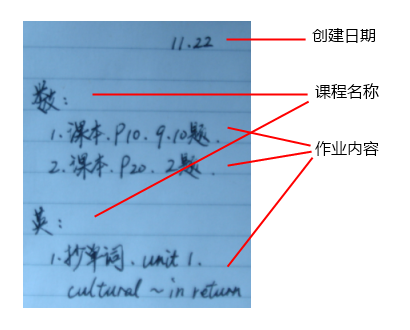 11.22
创建日期
数:
课程名称
1.课本.P10.9.10题.
作业内容
2.课本.P20.2题.
英:
1.抄单词.unit 1.
cultural ~ in return